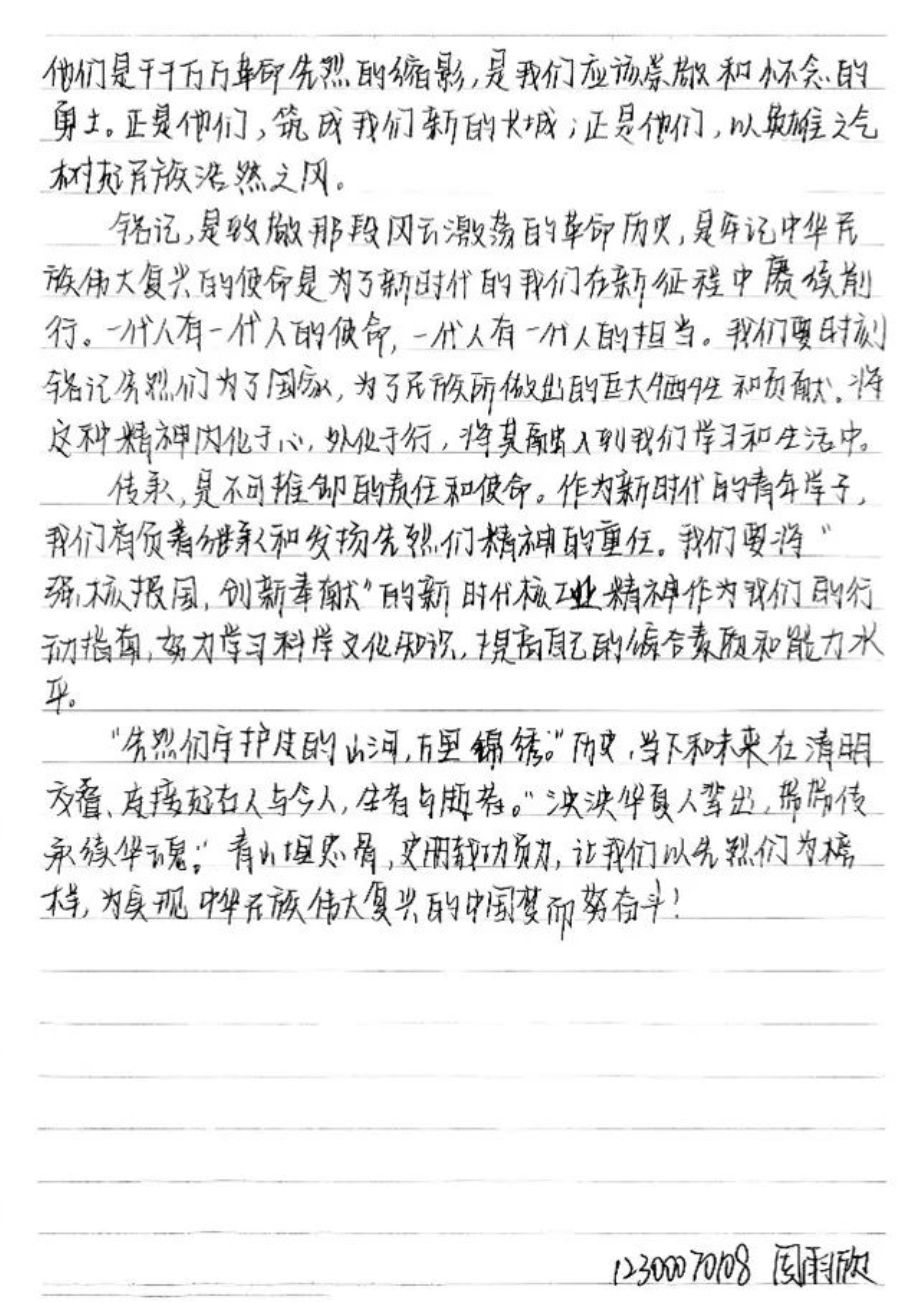 他们是千千万万革命先烈的缩影,是我们应该崇敬和怀念的
勇士。正是他们,筑成我们新的长城;正是他们,以英雄之气
树起民族浩然之风。
铭记,是致敬那段风云激荡的革命历史,是牢记中华民
族伟大复兴的使命是为了新时代的我们在新征程中赓续前
行。一代人有一代人的使命,一代人有一代人的担当。我们要时刻
铭记先烈们为了国家,为了民族所做出的巨大牺牲和贡献、将
这种精神内化于心,外化于行,将其融入到我们学习和生活中。
传承,是不可推卸的责任和使命。作为新时代的青年学子,
我们肩负着继承和发扬先烈们精神的重任。我们要将“
强核报国,创新奉献”的新时代核工业精神作为我们的行
动指南,努力学习科学文化知识,提高自己的综合素质和能力水
平。
“先烈们守护过的山河,万里锦绣。”历史,当下和未来在清明
交叠、连接起古人与今人,生者与逝者。“泱泱华夏人辈出,帮帮传
承续华魂。”青山埋忠骨,史册载功勋,让我们以先烈们为榜
样,为实现中华民族伟大复兴的中国梦而努奋斗!
12300070108 周雨欣